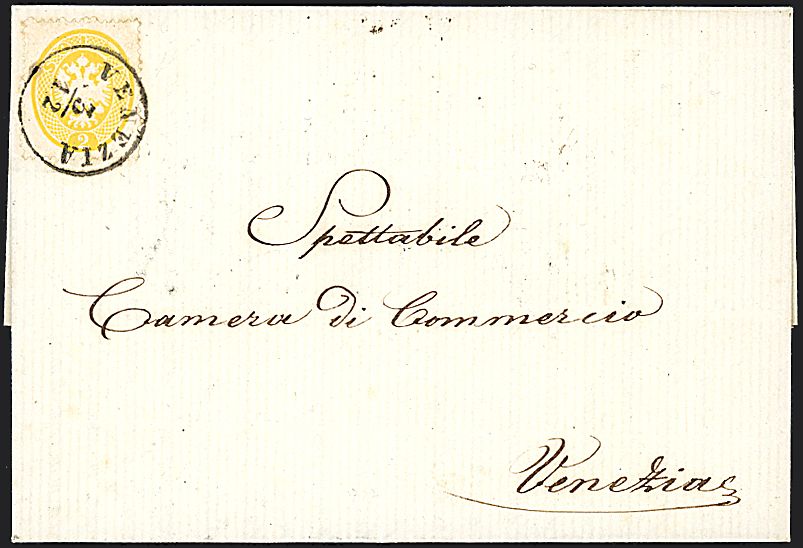 VENEZIA
13/12
2
Spettabile
Camera di Commercio
Venezia